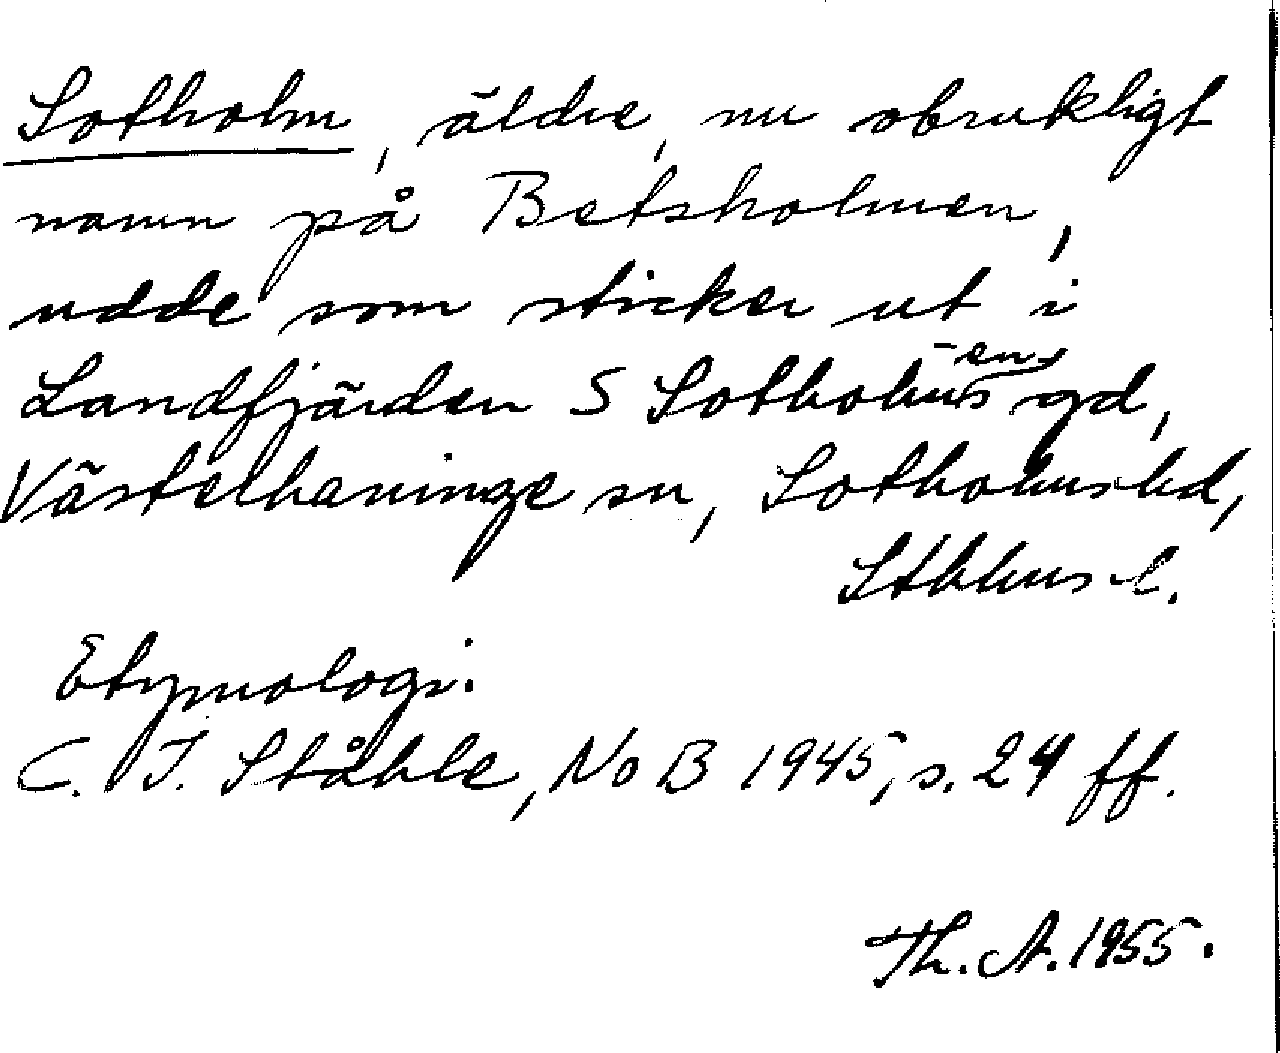 Sotholm, äldre, nu obrukligt
namn på Betsholmen,
udde som sticker ut i
Landfjärden S Sotholms gd,
Västerhaninge sn, Sotholms hd,
Sthlms l.
Etymologi:
C. I. Ståhle, NoB 1945, s. 24 ff.
Th. A. 1955.